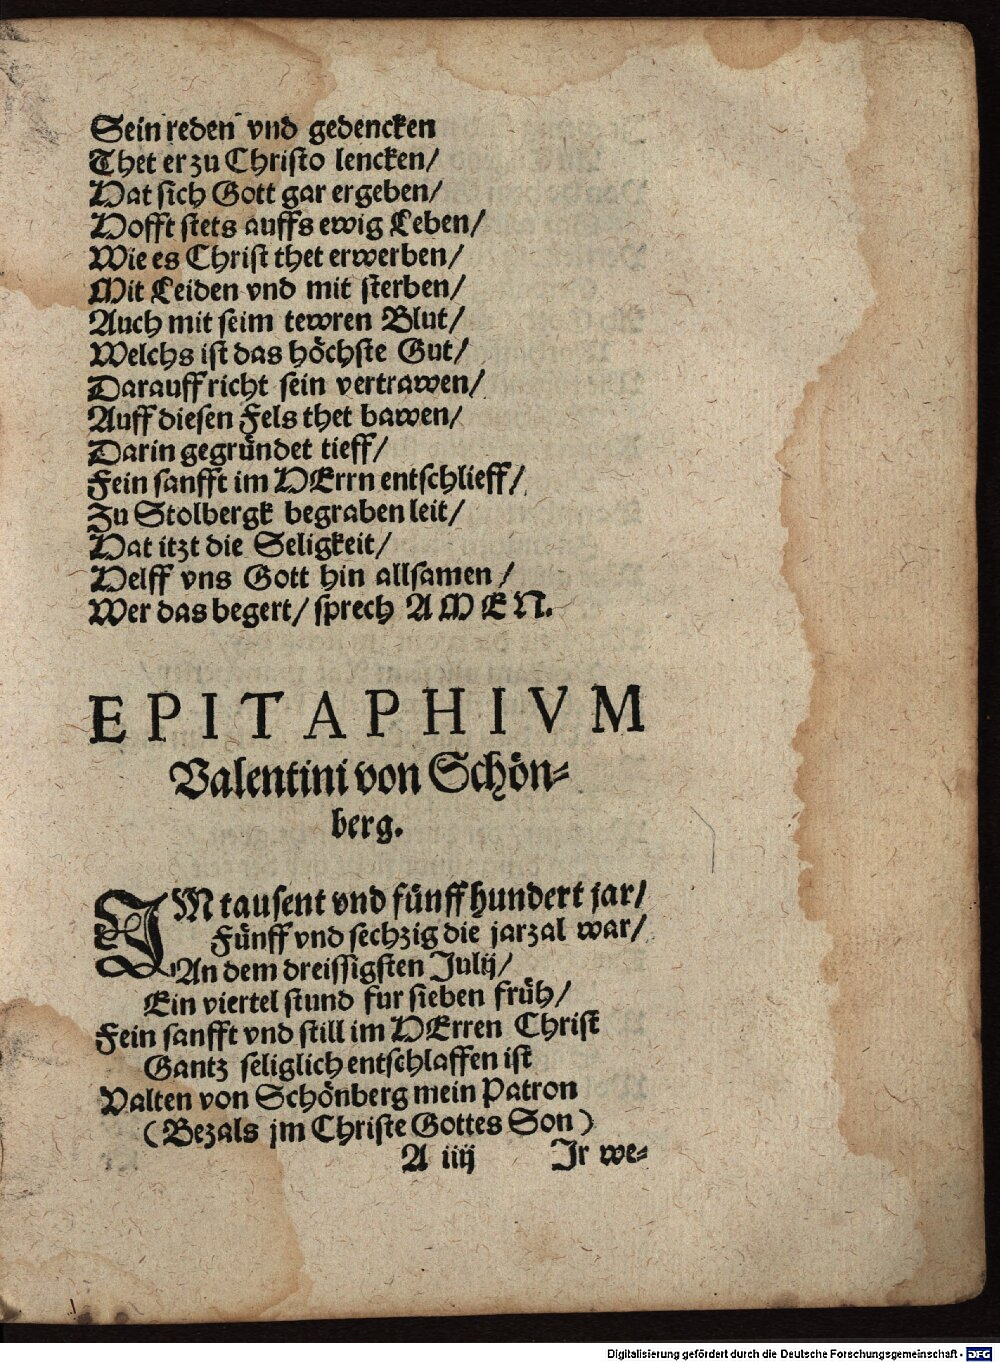 Sein reden vnd gedencken
Thet er zu Christo lencken/
Hat sich Gott gar ergeben/
Hofft stets auffs ewig Leben/
Wie es Christ thet erwerben/
Mit Leiden vnd mit sterben/
Auch mit seim tewren Blut/
Welchs ist das höchste Gut/
Darauff richt sein vertrawen/
Auff diesen Fels thet bawen/
Darin gegründet tieff/
Fein sanfft im HErrn entschlieff/
Zu Stolbergk begraben leit/
Hat itzt die Seligkeit/
Helff vns Gott hin allsamen/
Wer das begert/ sprech AMEN.
EPITAPHIVM
Valentini von Schön-
berg.
IM tausent vnd fünff hundert jar/
Fünff vnd sechzig die jarzal war/
An dem dreissigsten Julij/
Ein viertel stund fur sieben früh/
Fein sanfft vnd still im HErren Christ
Gantz seliglich entschlaffen ist
Valten von Schönberg mein Patron
(Bezals jm Christe Gottes Son)
A iiij Jr we-
Digitalisierung gefördert durch die Deutsche Forschungsgemeinschaft - DFG